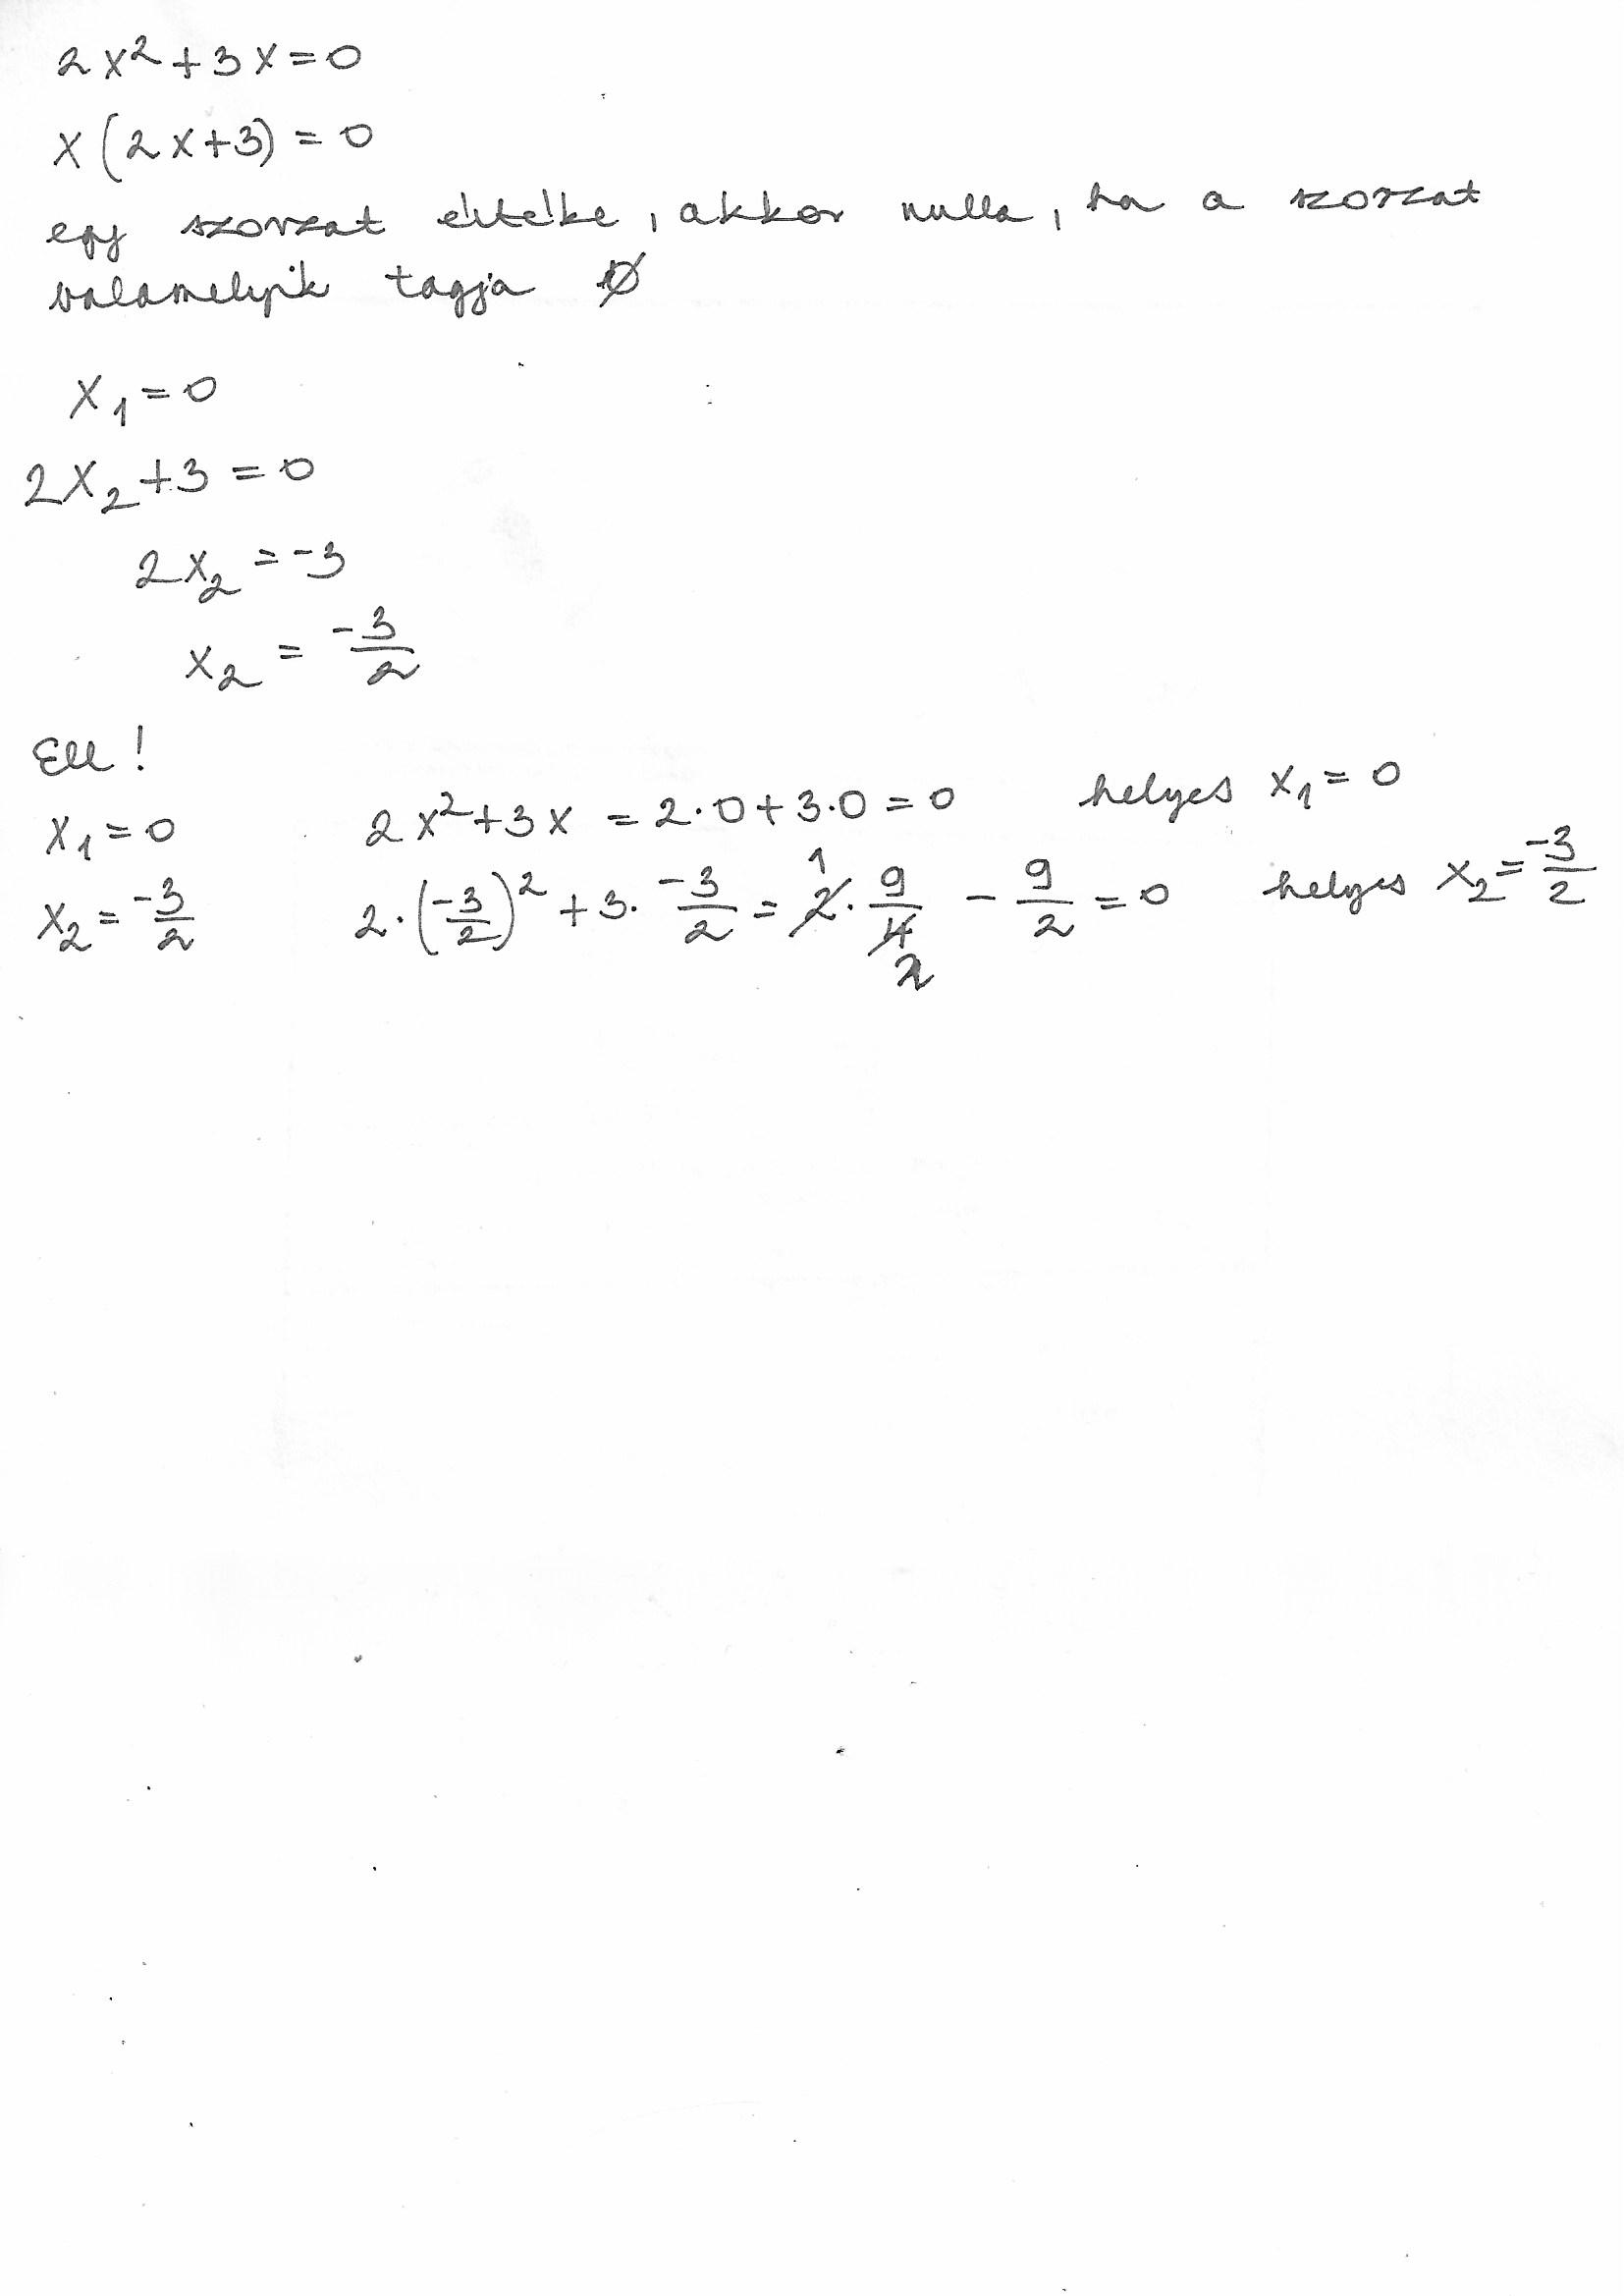 2x²+3x=0
x(2x+3)=0
egy szorzat értéke, akkor nulla, ha a szorzat
valamelyik tagja 0
x₁=0
2x₂+3=0
2x₂=-3
x₂=-3/2
Ell!
x₁=0 2x²+3x=2·0+3·0=0 helyes x₁=0
x₂=-3/2 2·(-3/2)²+3·-3/2=2·9/4-9/2=0 helyes x₂=-3/2